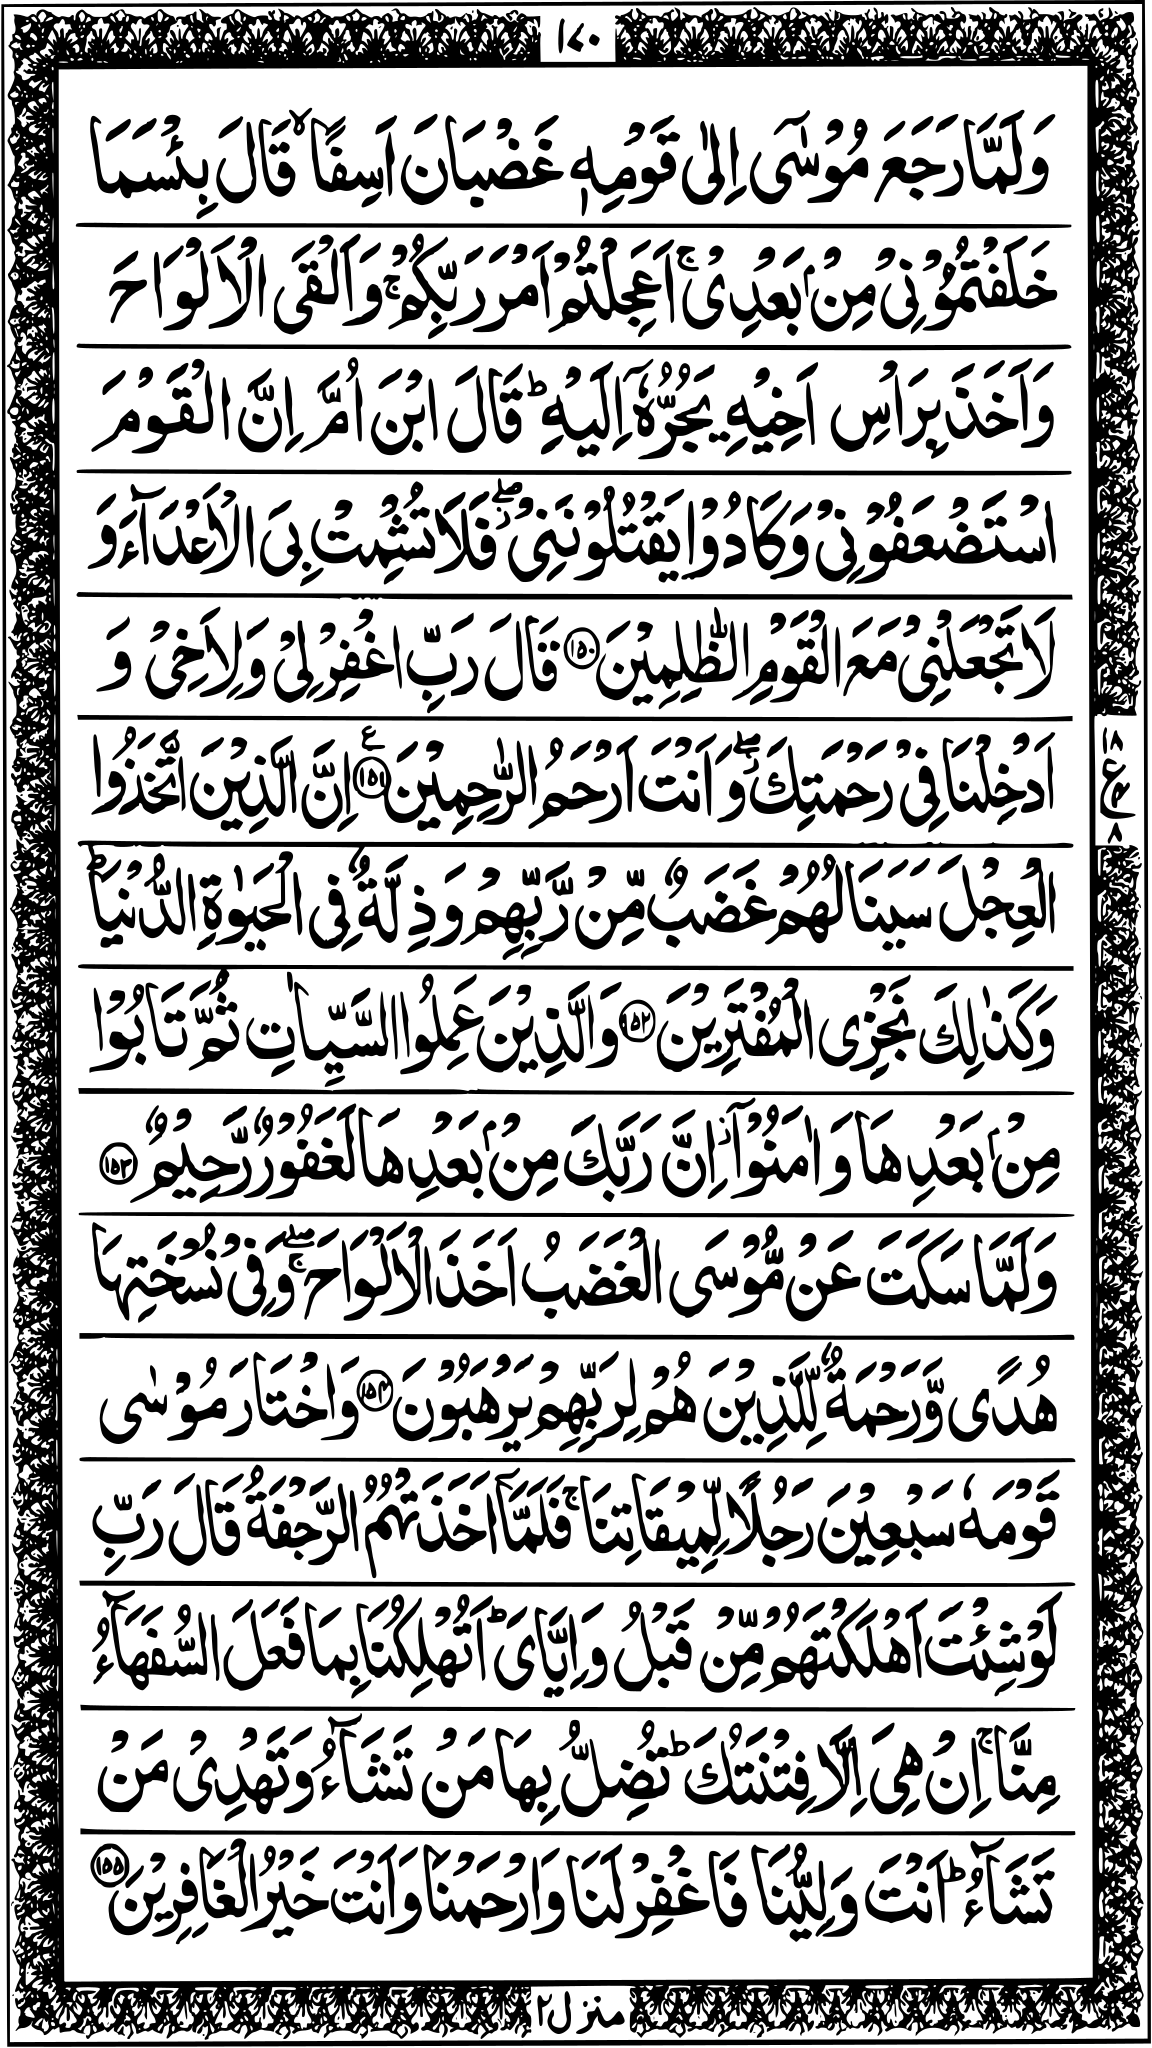 ١٤٠
وَلَمَّا رَجَعَ مُوْسٰۤى اِلٰى قَوْمِهٖ غَضْبَانَ اَسِفًا ۙ قَالَ بِئْسَمَا
خَلَفْتُمُوْنِیْ مِنْۢ بَعْدِیْ ۚ اَعَجِلْتُمْ اَمْرَ رَبِّكُمْ ۚ وَاَلْقَى الْاَلْوَاحَ
وَاَخَذَ بِرَاْسِ اَخِیْهِ یَجُرُّهٗۤ اِلَیْهِ ؕ قَالَ ابْنَ اُمَّ اِنَّ الْقَوْمَ
اسْتَضْعَفُوْنِیْ وَكَادُوْا یَقْتُلُوْنَنِیْ ۖ٘ فَلَا تُشْمِتْ بِیَ الْاَعْدَآءَ وَ
لَا تَجْعَلْنِیْ مَعَ الْقَوْمِ الظّٰلِمِیْنَ ﴿١٥٠﴾ قَالَ رَبِّ اغْفِرْ لِیْ وَلِاَخِیْ وَ
اَدْخِلْنَا فِیْ رَحْمَتِكَ ۖ٘ وَاَنْتَ اَرْحَمُ الرّٰحِمِیْنَ ﴿١٥١﴾ ع اِنَّ الَّذِیْنَ اتَّخَذُوا
١٨ ع ٩ ٨
الْعِجْلَ سَیَنَالُهُمْ غَضَبٌ مِّنْ رَّبِّهِمْ وَذِلَّةٌ فِی الْحَیٰوةِ الدُّنْیَا ؕ
وَكَذٰلِكَ نَجْزِی الْمُفْتَرِیْنَ ﴿١٥٢﴾ وَالَّذِیْنَ عَمِلُوا السَّیِّاٰتِ ثُمَّ تَابُوْا
مِنْۢ بَعْدِهَا وَاٰمَنُوْۤا ؗ اِنَّ رَبَّكَ مِنْۢ بَعْدِهَا لَغَفُوْرٌ رَّحِیْمٌ ﴿١٥٣﴾
وَلَمَّا سَكَتَ عَنْ مُّوْسَى الْغَضَبُ اَخَذَ الْاَلْوَاحَ ۖۚ وَفِیْ نُسْخَتِهَا
هُدًى وَّرَحْمَةٌ لِّلَّذِیْنَ هُمْ لِرَبِّهِمْ یَرْهَبُوْنَ ﴿١٥٤﴾ وَاخْتَارَ مُوْسٰى
قَوْمَهٗ سَبْعِیْنَ رَجُلًا لِّمِیْقَاتِنَا ۚ فَلَمَّاۤ اَخَذَتْهُمُ الرَّجْفَةُ قَالَ رَبِّ
لَوْ شِئْتَ اَهْلَكْتَهُمْ مِّنْ قَبْلُ وَاِیَّایَ ؕ اَتُهْلِكُنَا بِمَا فَعَلَ السُّفَهَآءُ
مِنَّا ۚ اِنْ هِیَ اِلَّا فِتْنَتُكَ ؕ تُضِلُّ بِهَا مَنْ تَشَآءُ وَتَهْدِیْ مَنْ
تَشَآءُ ؕ اَنْتَ وَلِیُّنَا فَاغْفِرْ لَنَا وَارْحَمْنَا وَاَنْتَ خَیْرُ الْغَافِرِیْنَ ﴿١٥٥﴾
منزل ٢